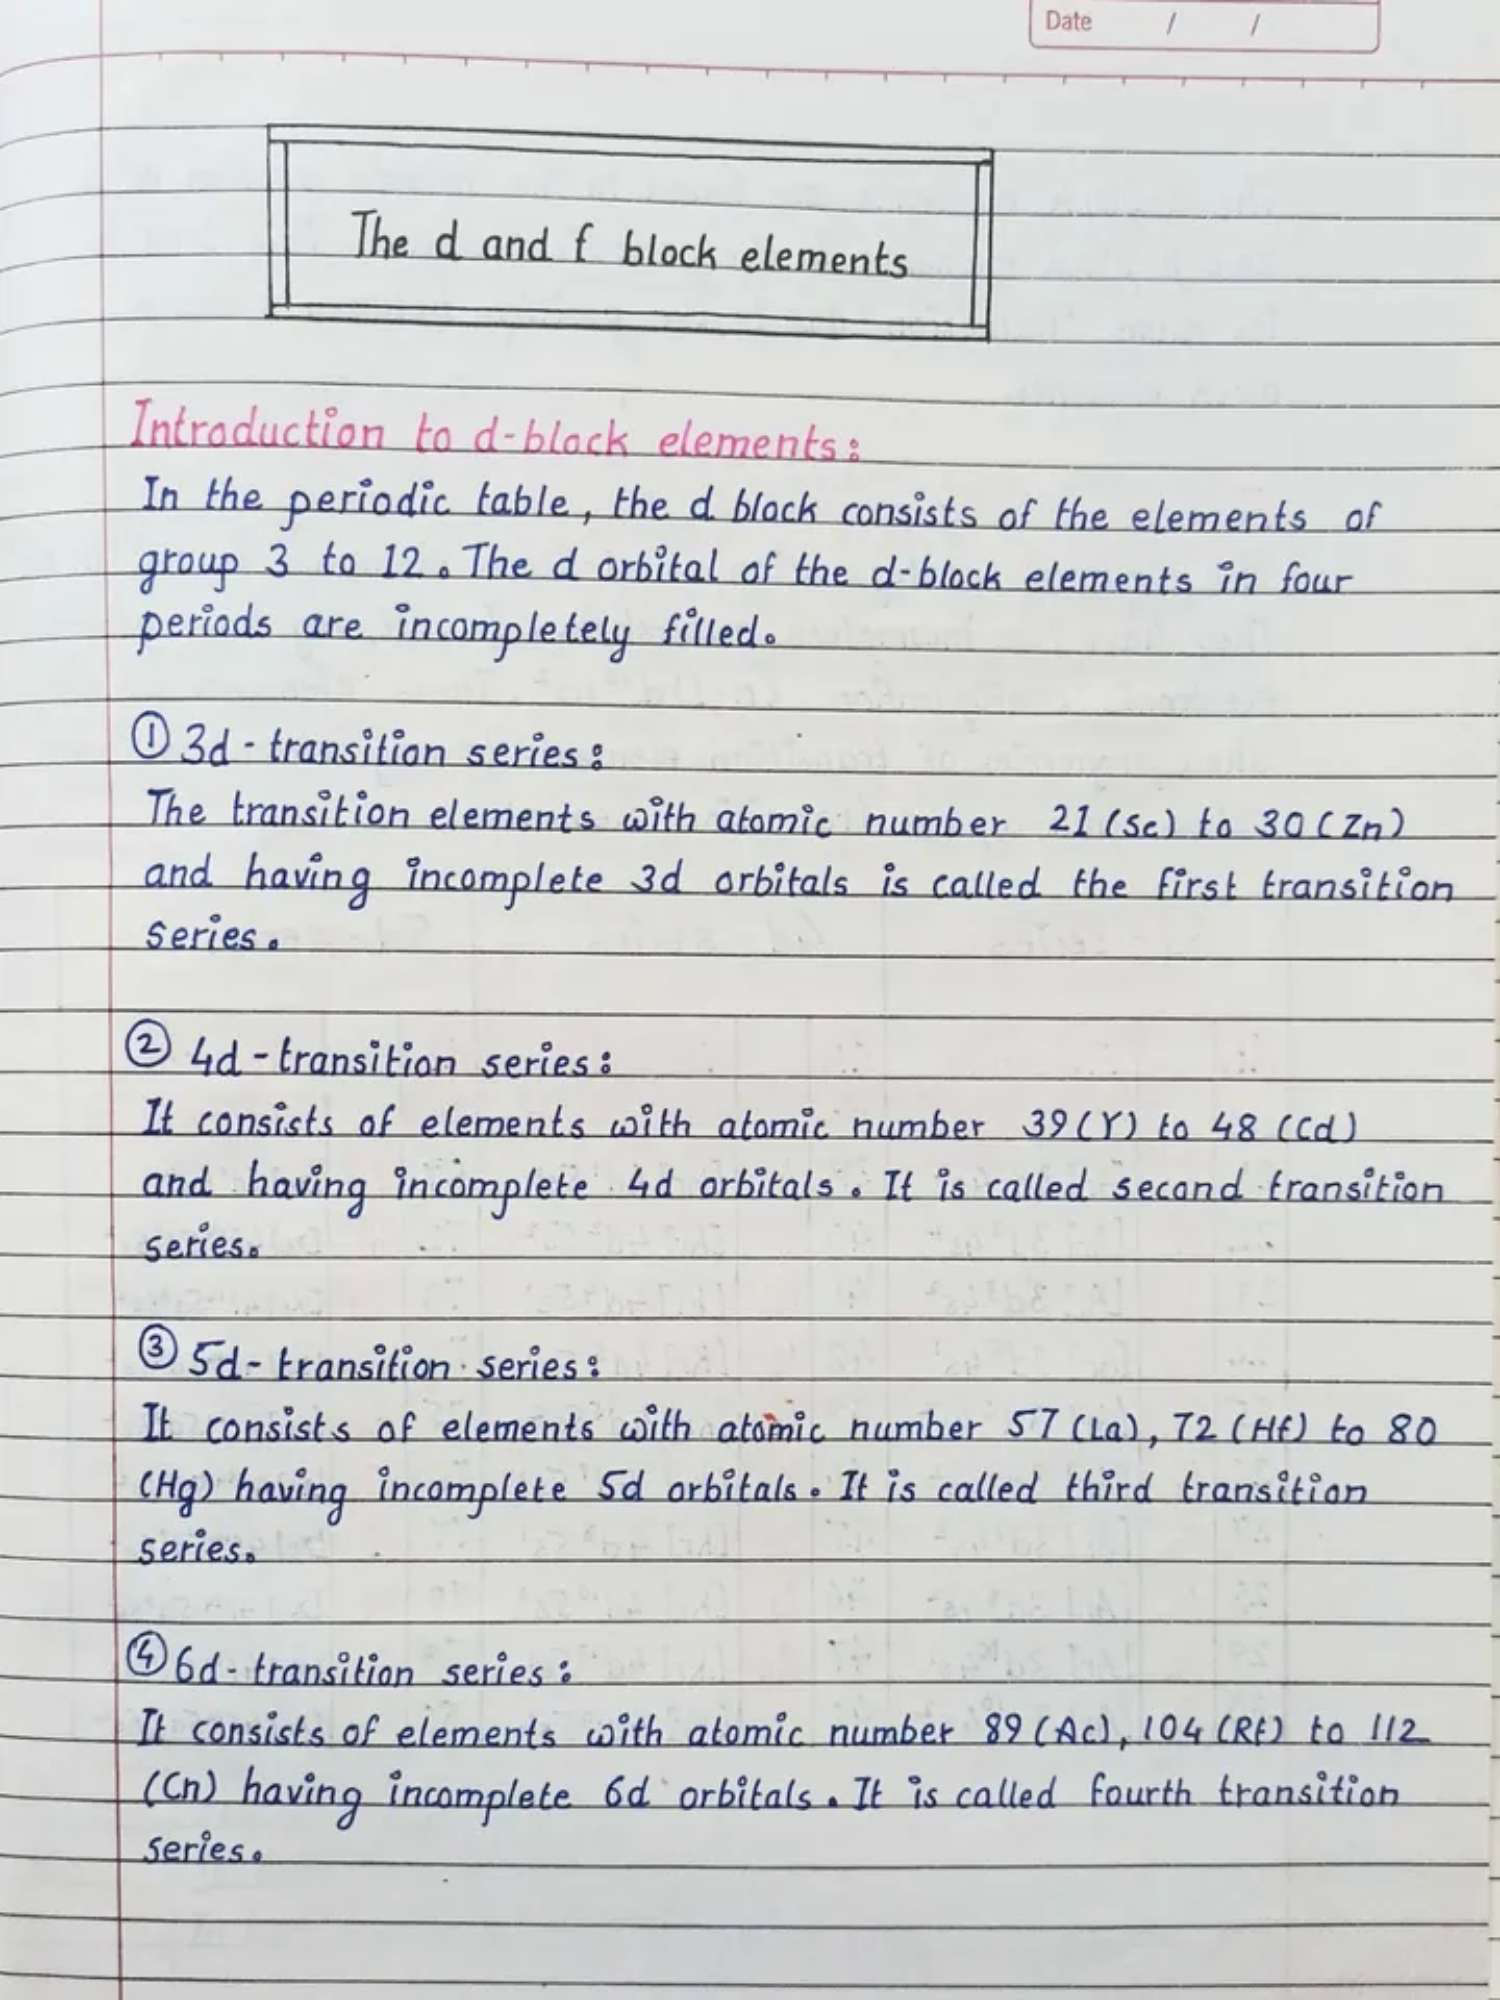 Date / /
The d and f block elements
Introduction to d-block elements:
In the periodic table, the d block consists of the elements of
group 3 to 12. The d orbital of the d-block elements in four
periods are incompletely filled.
① 3d-transition series:
The transition elements with atomic number 21 (Sc) to 30 (Zn)
and having incomplete 3d orbitals is called the first transition
series.
② 4d-transition series:
It consists of elements with atomic number 39 (Y) to 48 (Cd)
and having incomplete 4d orbitals. It is called second transition
series.
③ 5d-transition series:
It consists of elements with atomic number 57 (La), 72 (Hf) to 80
(Hg) having incomplete 5d orbitals. It is called third transition
series.
④ 6d-transition series:
It consists of elements with atomic number 89 (Ac), 104 (Rf) to 112
(Cn) having incomplete 6d orbitals. It is called fourth transition
series.